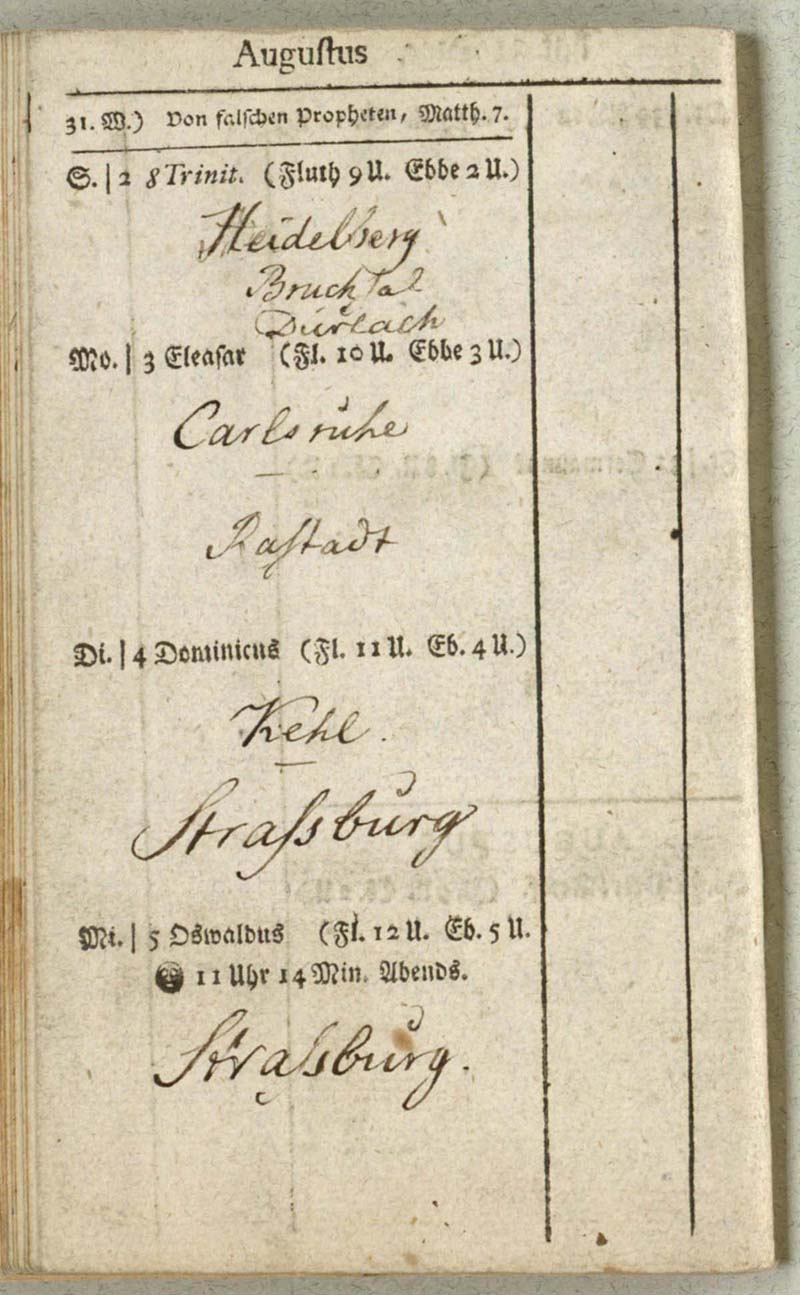 Augustus
31. W.) Von falschen Propheten, Matth. 7.
S. | 2 8 Trinit. (Fluth 9 U. Ebbe 2 U.)
Heidelberg
Bruchsal
Durlach
Mo. | 3 Eleasar (Fl. 10 U. Ebbe 3 U.)
Carlsruhe
Rastadt
Di. | 4 Dominicus (Fl. 11 U. Eb. 4 U.)
Kehl.
Strassburg
Mi. | 5 Oswaldus (Fl. 12 U. Eb. 5 U.
11 Uhr 14 Min. Abends.
Strassburg.